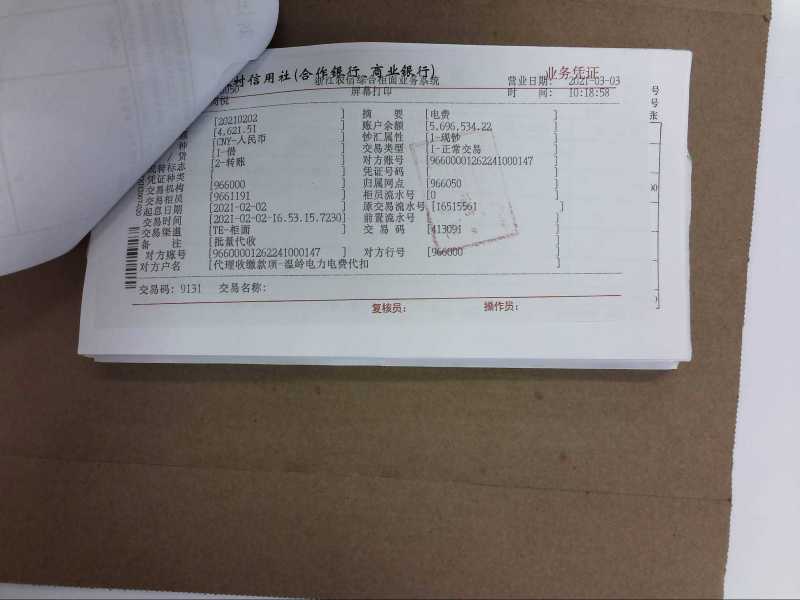 村信用社(合作银行、商业银行) 业务凭证
浙江农信综合柜面业务系统 营业日期: 2021-03-03
屏幕打印 时 间: 10:18:58
[20210202 ] 摘 要 [电费 ]
[4,621.51 ] 账户余额 [5,696,534.22 ]
[CNY-人民币 ] 钞汇属性 [1-现钞 ]
[1-借 ] 交易类型 [1-正常交易 ]
标志 [2-转账 ] 对方账号 [96600001262241000147 ]
凭证种类 [ ] 凭证号码 [ ]
交易机构 [966000 ] 归属网点 [966050 ]
交易柜员 [9661191 ] 柜员流水号 [0 ]
起息日期 [2021-02-02 ] 原交易流水号 [16515561 ]
交易时间 [2021-02-02-16.53.15.7230] 前置流水号 [ ]
交易渠道 [TE-柜面 ] 交 易 码 [413091 ]
备 注 [批量代收 ]
对方账号 [96600001262241000147 ] 对方行号 [966000 ]
对方户名 [代理收缴款项-温岭电力电费代扣 ]
交易码: 9131 交易名称:
复核员: 操作员:
号
号
张